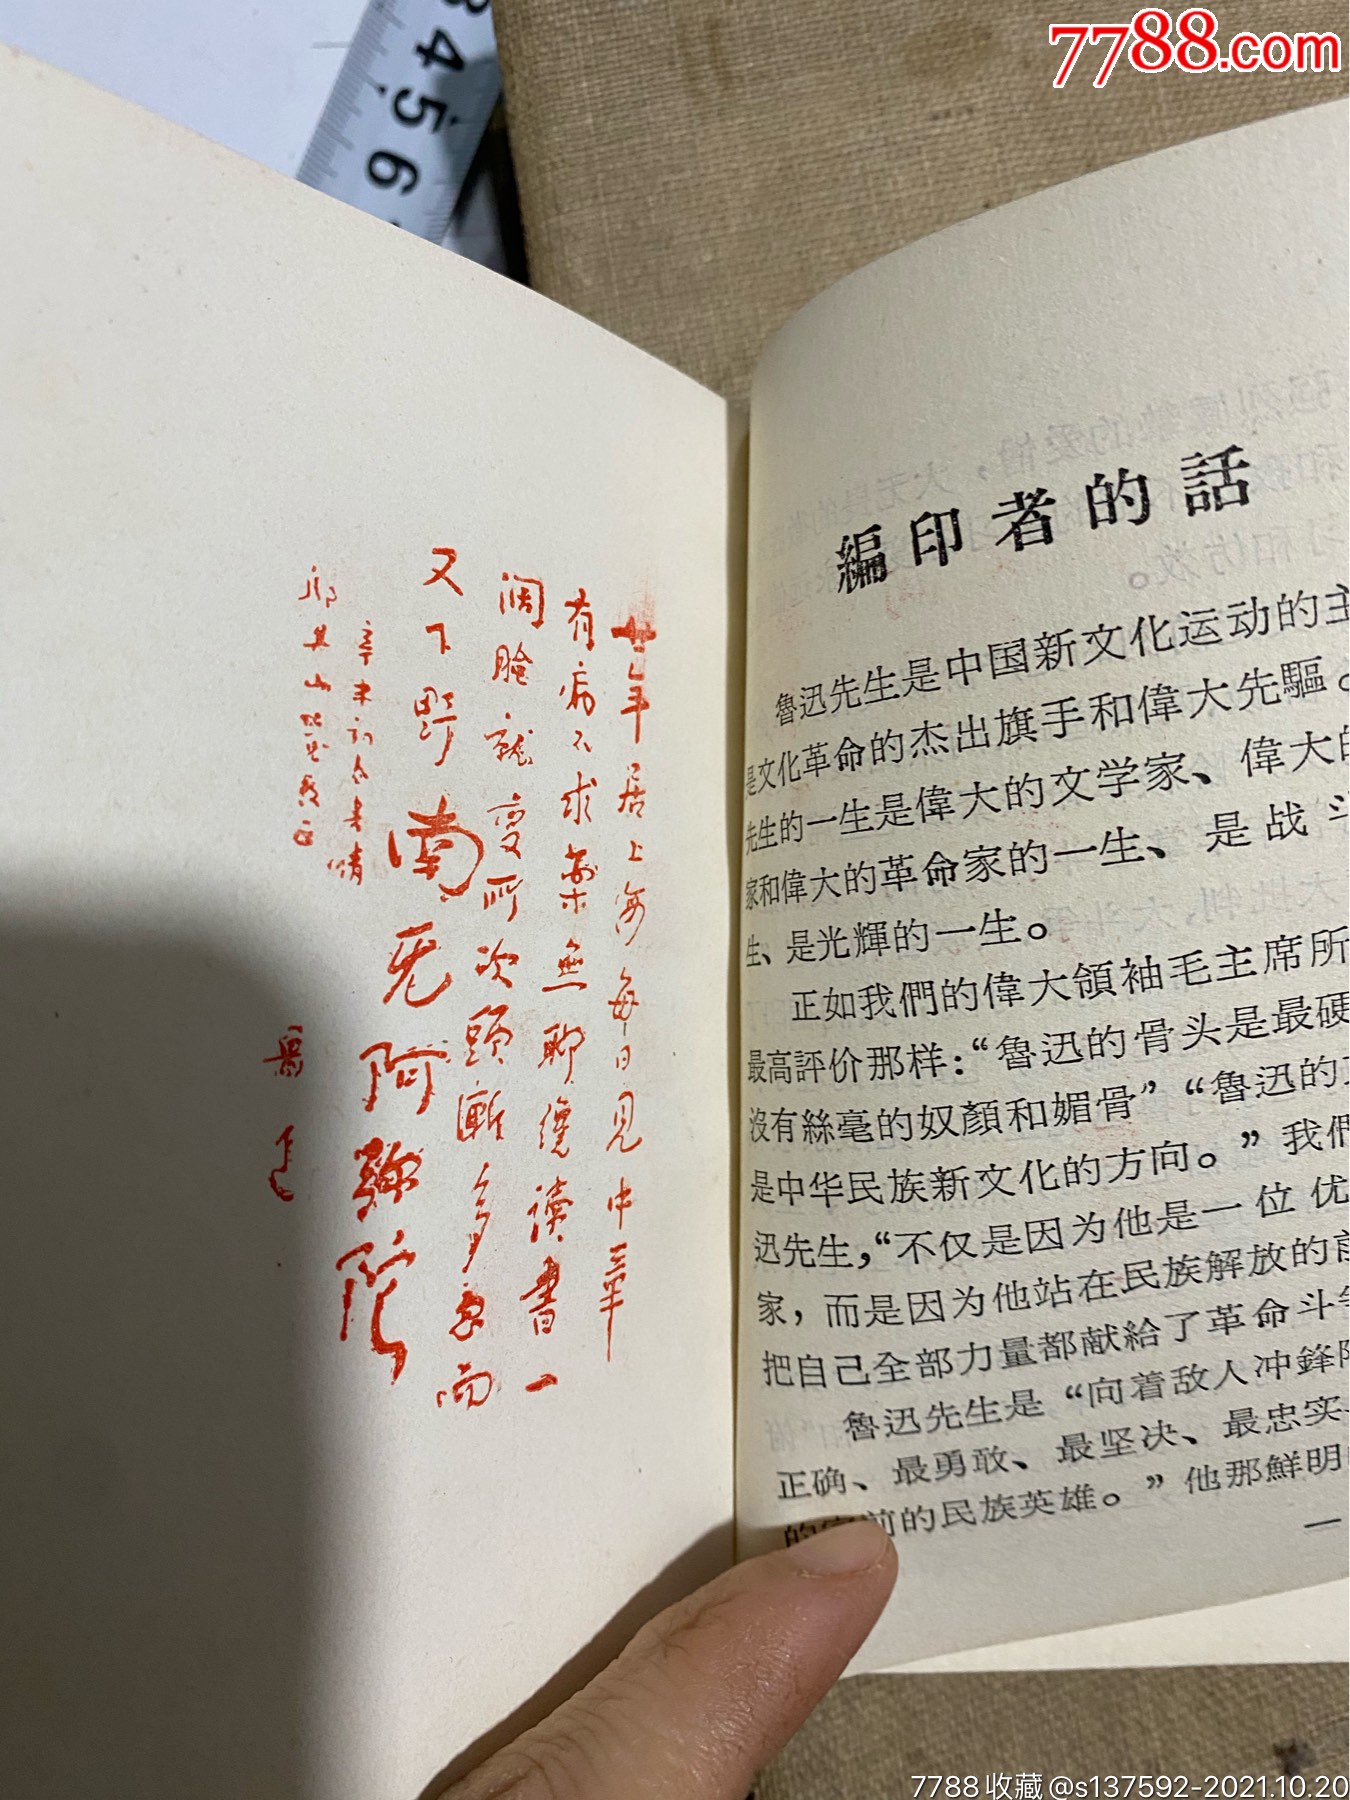 7788.com
3456
廿年居上海每日見中華
有病不求藥無聊纔讀書一
闊臉就變所砍頭漸多忽而
又下野南无阿彌陀
辛未初春書請
邬其山笑教正
魯迅
編印者的話
魯迅先生是中国新文化运动的主
是文化革命的杰出旗手和偉大先驅。
先生的一生是偉大的文学家、偉大的
家和偉大的革命家的一生、是战斗
生、是光輝的一生。
正如我們的偉大領袖毛主席所
最高評价那样：“魯迅的骨头是最硬
沒有絲毫的奴顏和媚骨”“魯迅的
是中华民族新文化的方向。”我們
迅先生，“不仅是因为他是一位优
家，而是因为他站在民族解放的前
把自己全部力量都献給了革命斗争
魯迅先生是“向着敌人冲鋒陷
正确、最勇敢、最坚决、最忠实
的空前的民族英雄。”他那鮮明
一
7788收藏@s137592-2021.10.20